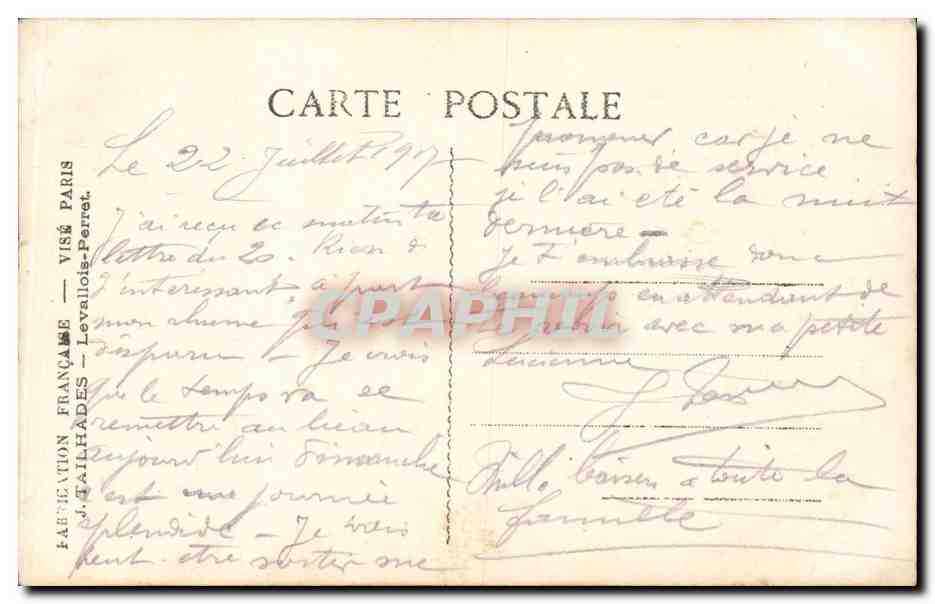 CARTE POSTALE
FABRICATION FRANÇAISE — VISÉ PARIS
J. TAILHADES — Levallois-Perret.
Le 22 Juillet 1917
J'ai reçu ce matin ta
lettre du 20. Rien d
d'intéressant, à part
mon rhume qui
disparu — Je crois
que le temps va se
remettre au beau
aujourd'hui Dimanche
c'est une journée
splendide — Je vais
peut-être sortir me
promener car je ne
suis pas de service
je l'ai été la nuit
dernière —
Je t'embrasse donc
beaucoup en attendant de
revenir avec ma petite
Lucienne
Mille baisers a toute la
famille
CPAPHIL